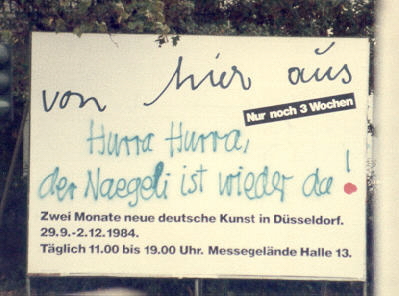 von hier aus
Nur noch 3 Wochen
Hurra Hurra,
der Naegeli ist wieder da!
Zwei Monate neue deutsche Kunst in Düsseldorf.
29.9.-2.12.1984.
Täglich 11.00 bis 19.00 Uhr. Messegelände Halle 13.